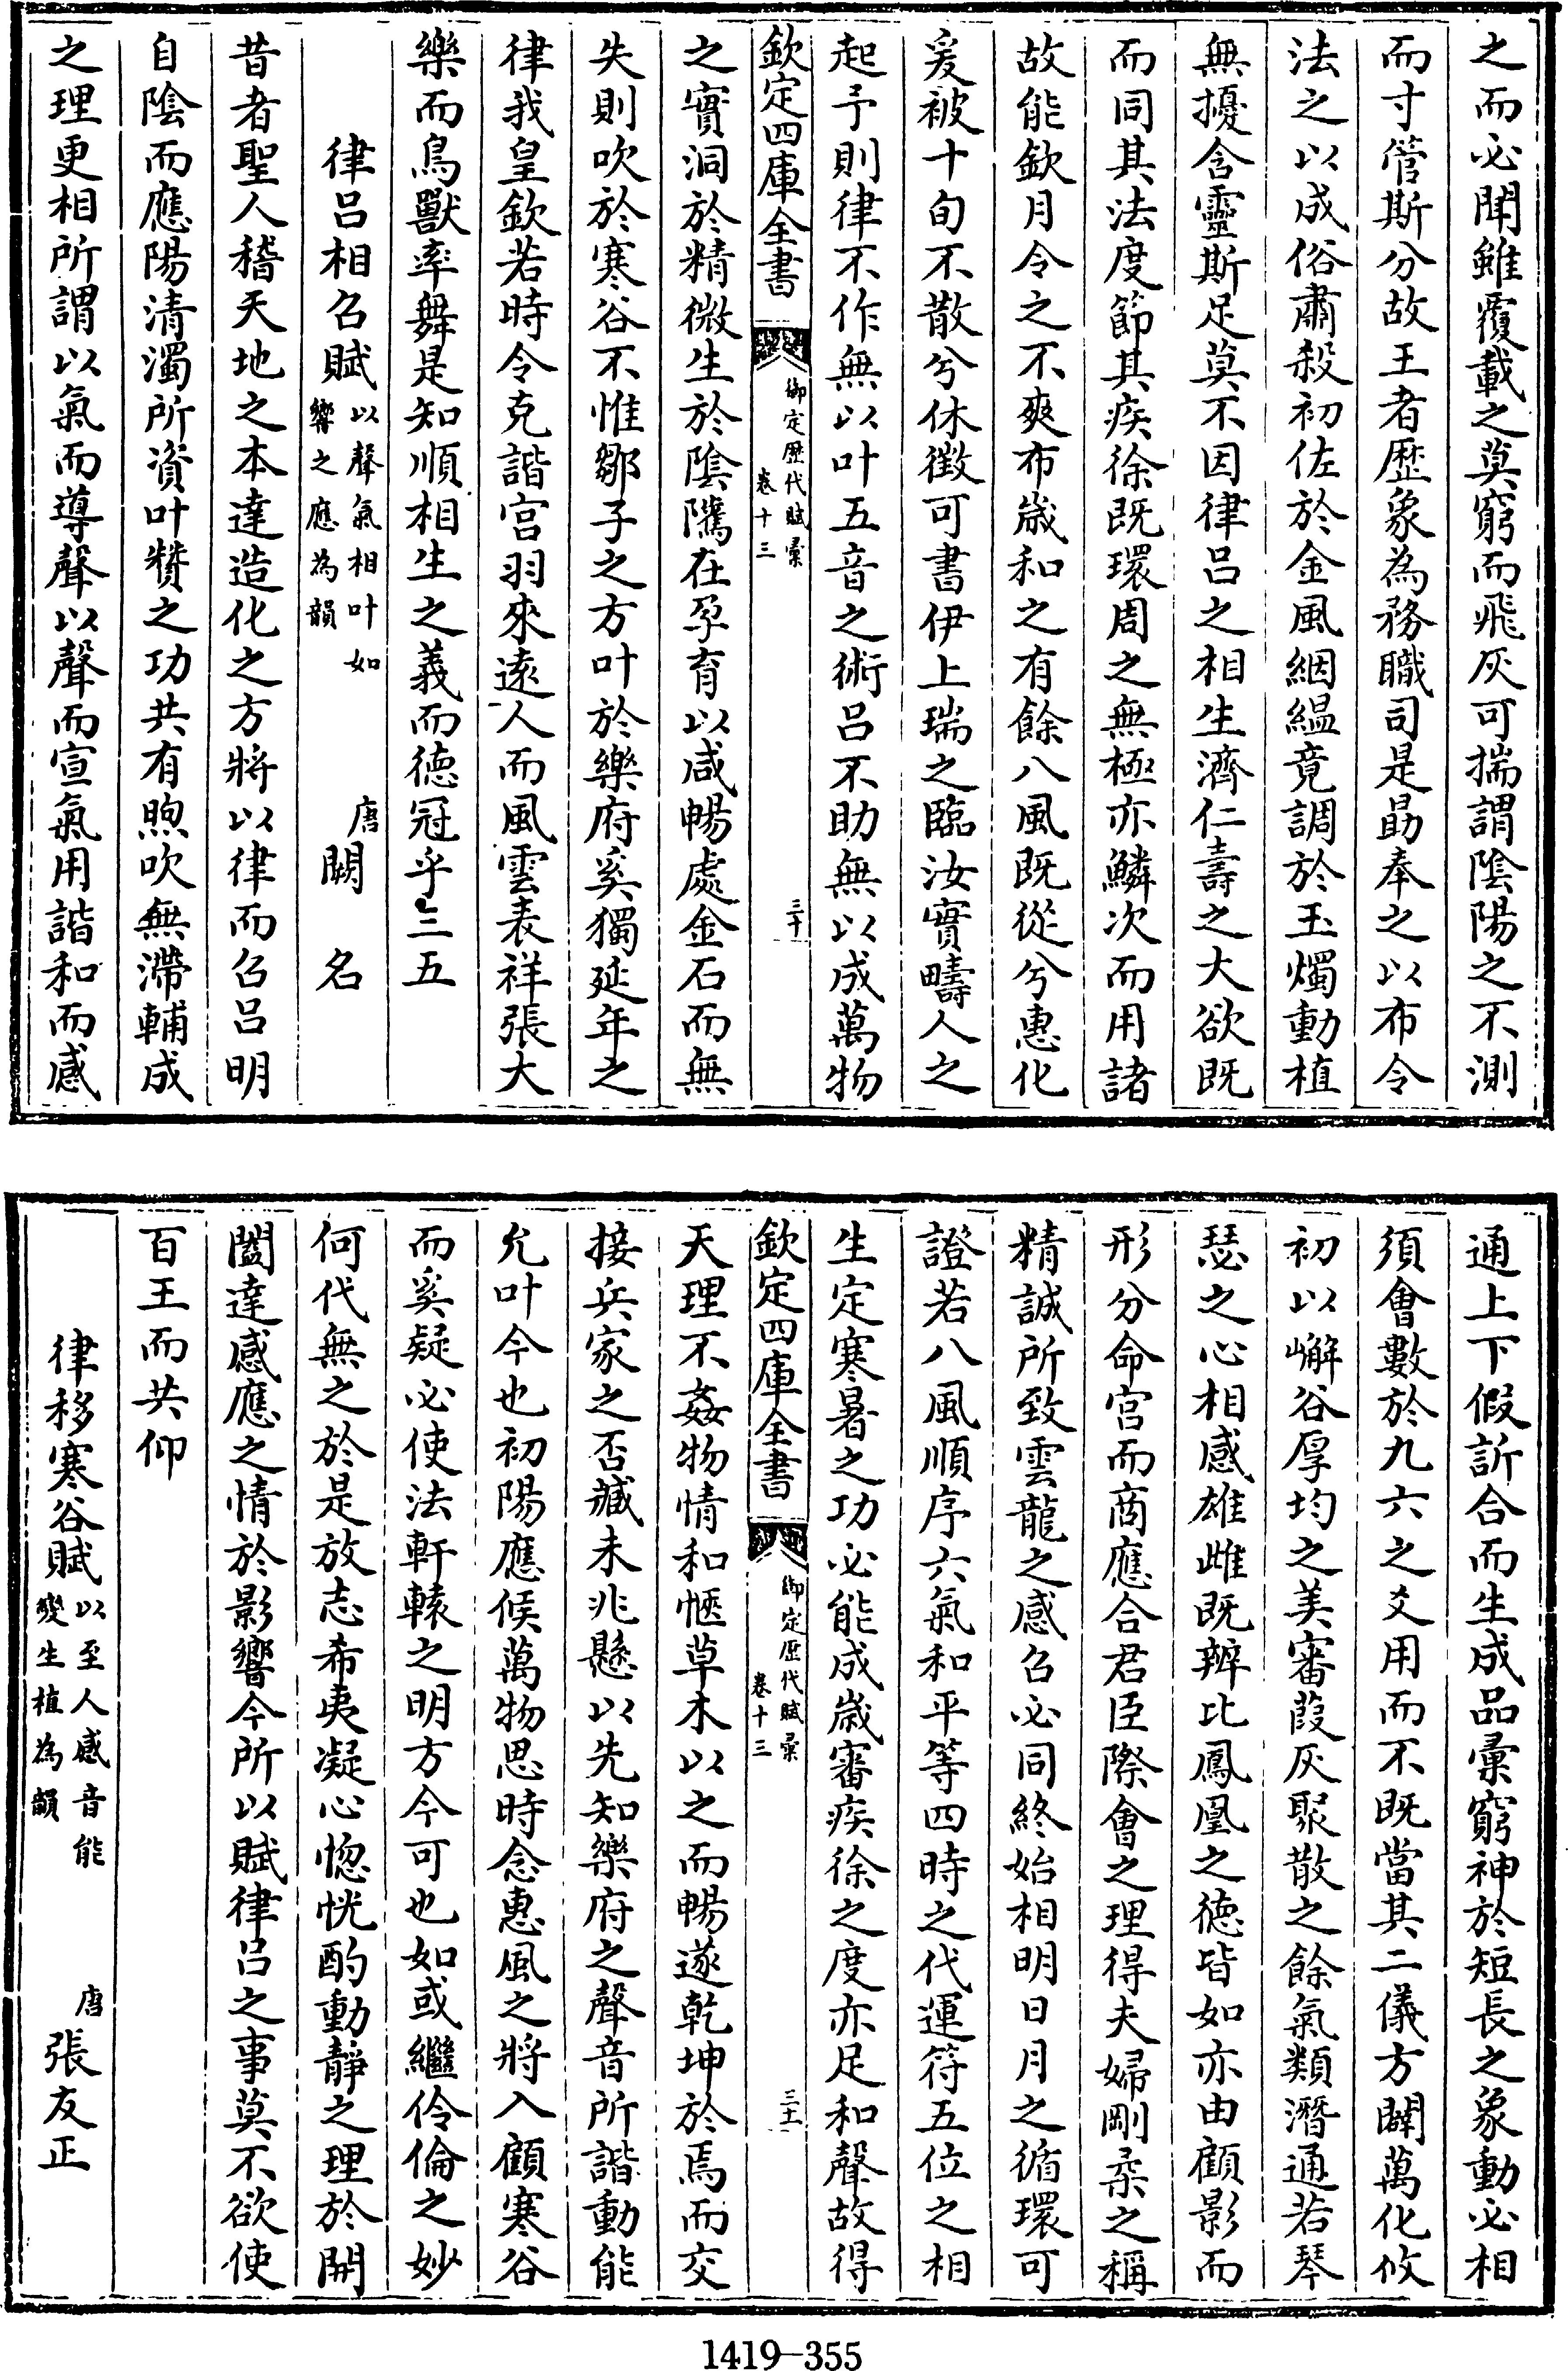 之而必聞雖覆載之莫窮而飛灰可揣謂陰陽之不測
而寸管斯分故王者歷象為務職司是勗奉之以布令
法之以成俗肅殺初佐於金風絪縕竟調於玉燭動植
無擾含靈斯足莫不因律呂之相生濟仁壽之大欲既
而同其法度節其疾徐既環周之無極亦鱗次而用諸
故能欽月令之不爽布歲和之有餘八風既從兮惠化
爰被十旬不散兮休徵可書伊上瑞之臨汝實疇人之
起予則律不作無以叶五音之術呂不助無以成萬物
欽定四庫全書
御定歷代賦彙
卷十三
三十
之實洞於精微生於陰隲在孕育以咸暢處金石而無
失則吹於寒谷不惟鄒子之方叶於樂府奚獨延年之
律我皇欽若時令克諧宫羽來遠人而風雲表祥張大
樂而鳥獸率舞是知順相生之義而德冠乎三五
律呂相召賦
以聲氣相叶如
響之應為韻
唐
闕名
昔者聖人稽天地之本達造化之方將以律而召呂明
自陰而應陽清濁所資叶贊之功共有煦吹無滯輔成
之理更相所謂以氣而導聲以聲而宣氣用諧和而感
通上下假訢合而生成品彙窮神於短長之象動必相
須會數於九六之爻用而不既當其二儀方闢萬化攸
初以嶰谷厚均之美審葭灰聚散之餘氣類潛通若琴
瑟之心相感雄雌既辨比鳳凰之德皆如亦由顧影而
形分命宫而商應合君臣際會之理得夫婦剛柔之稱
精誠所致雲龍之感召必同終始相明日月之循環可
證若八風順序六氣和平等四時之代運符五位之相
生定寒暑之功必能成歲審疾徐之度亦足和聲故得
欽定四庫全書
御定歷代賦彙
卷十三
三十一
天理不姦物情和愜草木以之而暢遂乾坤於焉而交
接兵家之否臧未兆懸以先知樂府之聲音所諧動能
允叶今也初陽應候萬物思時念惠風之將入顧寒谷
而奚疑必使法軒轅之明方今可也如或繼伶倫之妙
何代無之於是放志希夷凝心惚恍酌動靜之理於開
闔達感應之情於影響今所以賦律呂之事莫不欲使
百王而共仰
律移寒谷賦
以至人感音能
變生植為韻
唐
張友正
1419-355